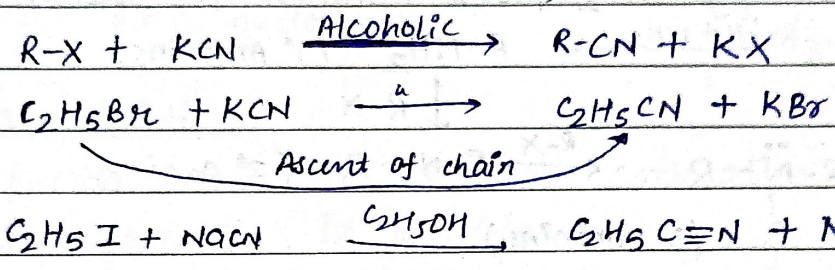 R-X + KCN Alcoholic → R-CN + KX
C₂H₅Br + KCN " → C₂H₅CN + KBr
Ascent of chain
C₂H₅I + NaCN C₂H₅OH → C₂H₅C≡N + N